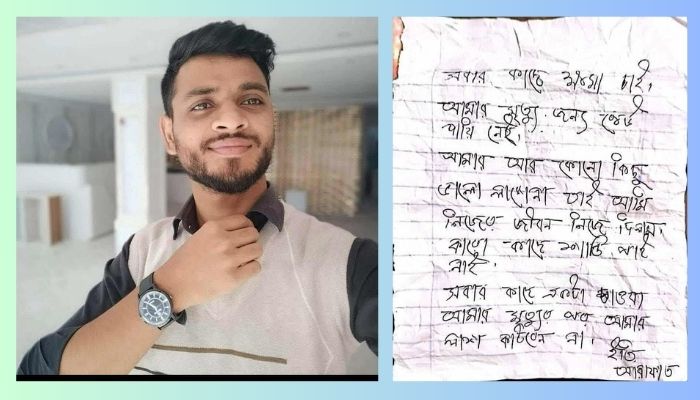 সবার কাছে ক্ষমা চাই,
আমার মৃত্যু জন্য কেউ
দায়ি নেই,
আমার আর কোনো কিছু
ভালো লাগেনা তাই আমি
নিজের জীবন নিজে দিলাম,
কারো কাছে শান্তি পাই
নাই.
সবার কাছে একটা চাওয়া
আমার মৃত্যুর পর আমার
লাশ কাটবেন না.
ইতি
আরাফাত